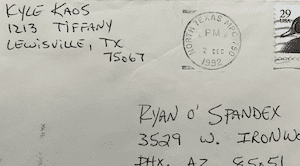 KYLE KAOS
1213 TIFFANY
LEWISVILLE, TX
75067
NORTH TEXAS MPC 750
PM
2 DEC
1992
29
USA
RYAN O' SPANDEX
3529 W. IRONWO
PHX, AZ 85051